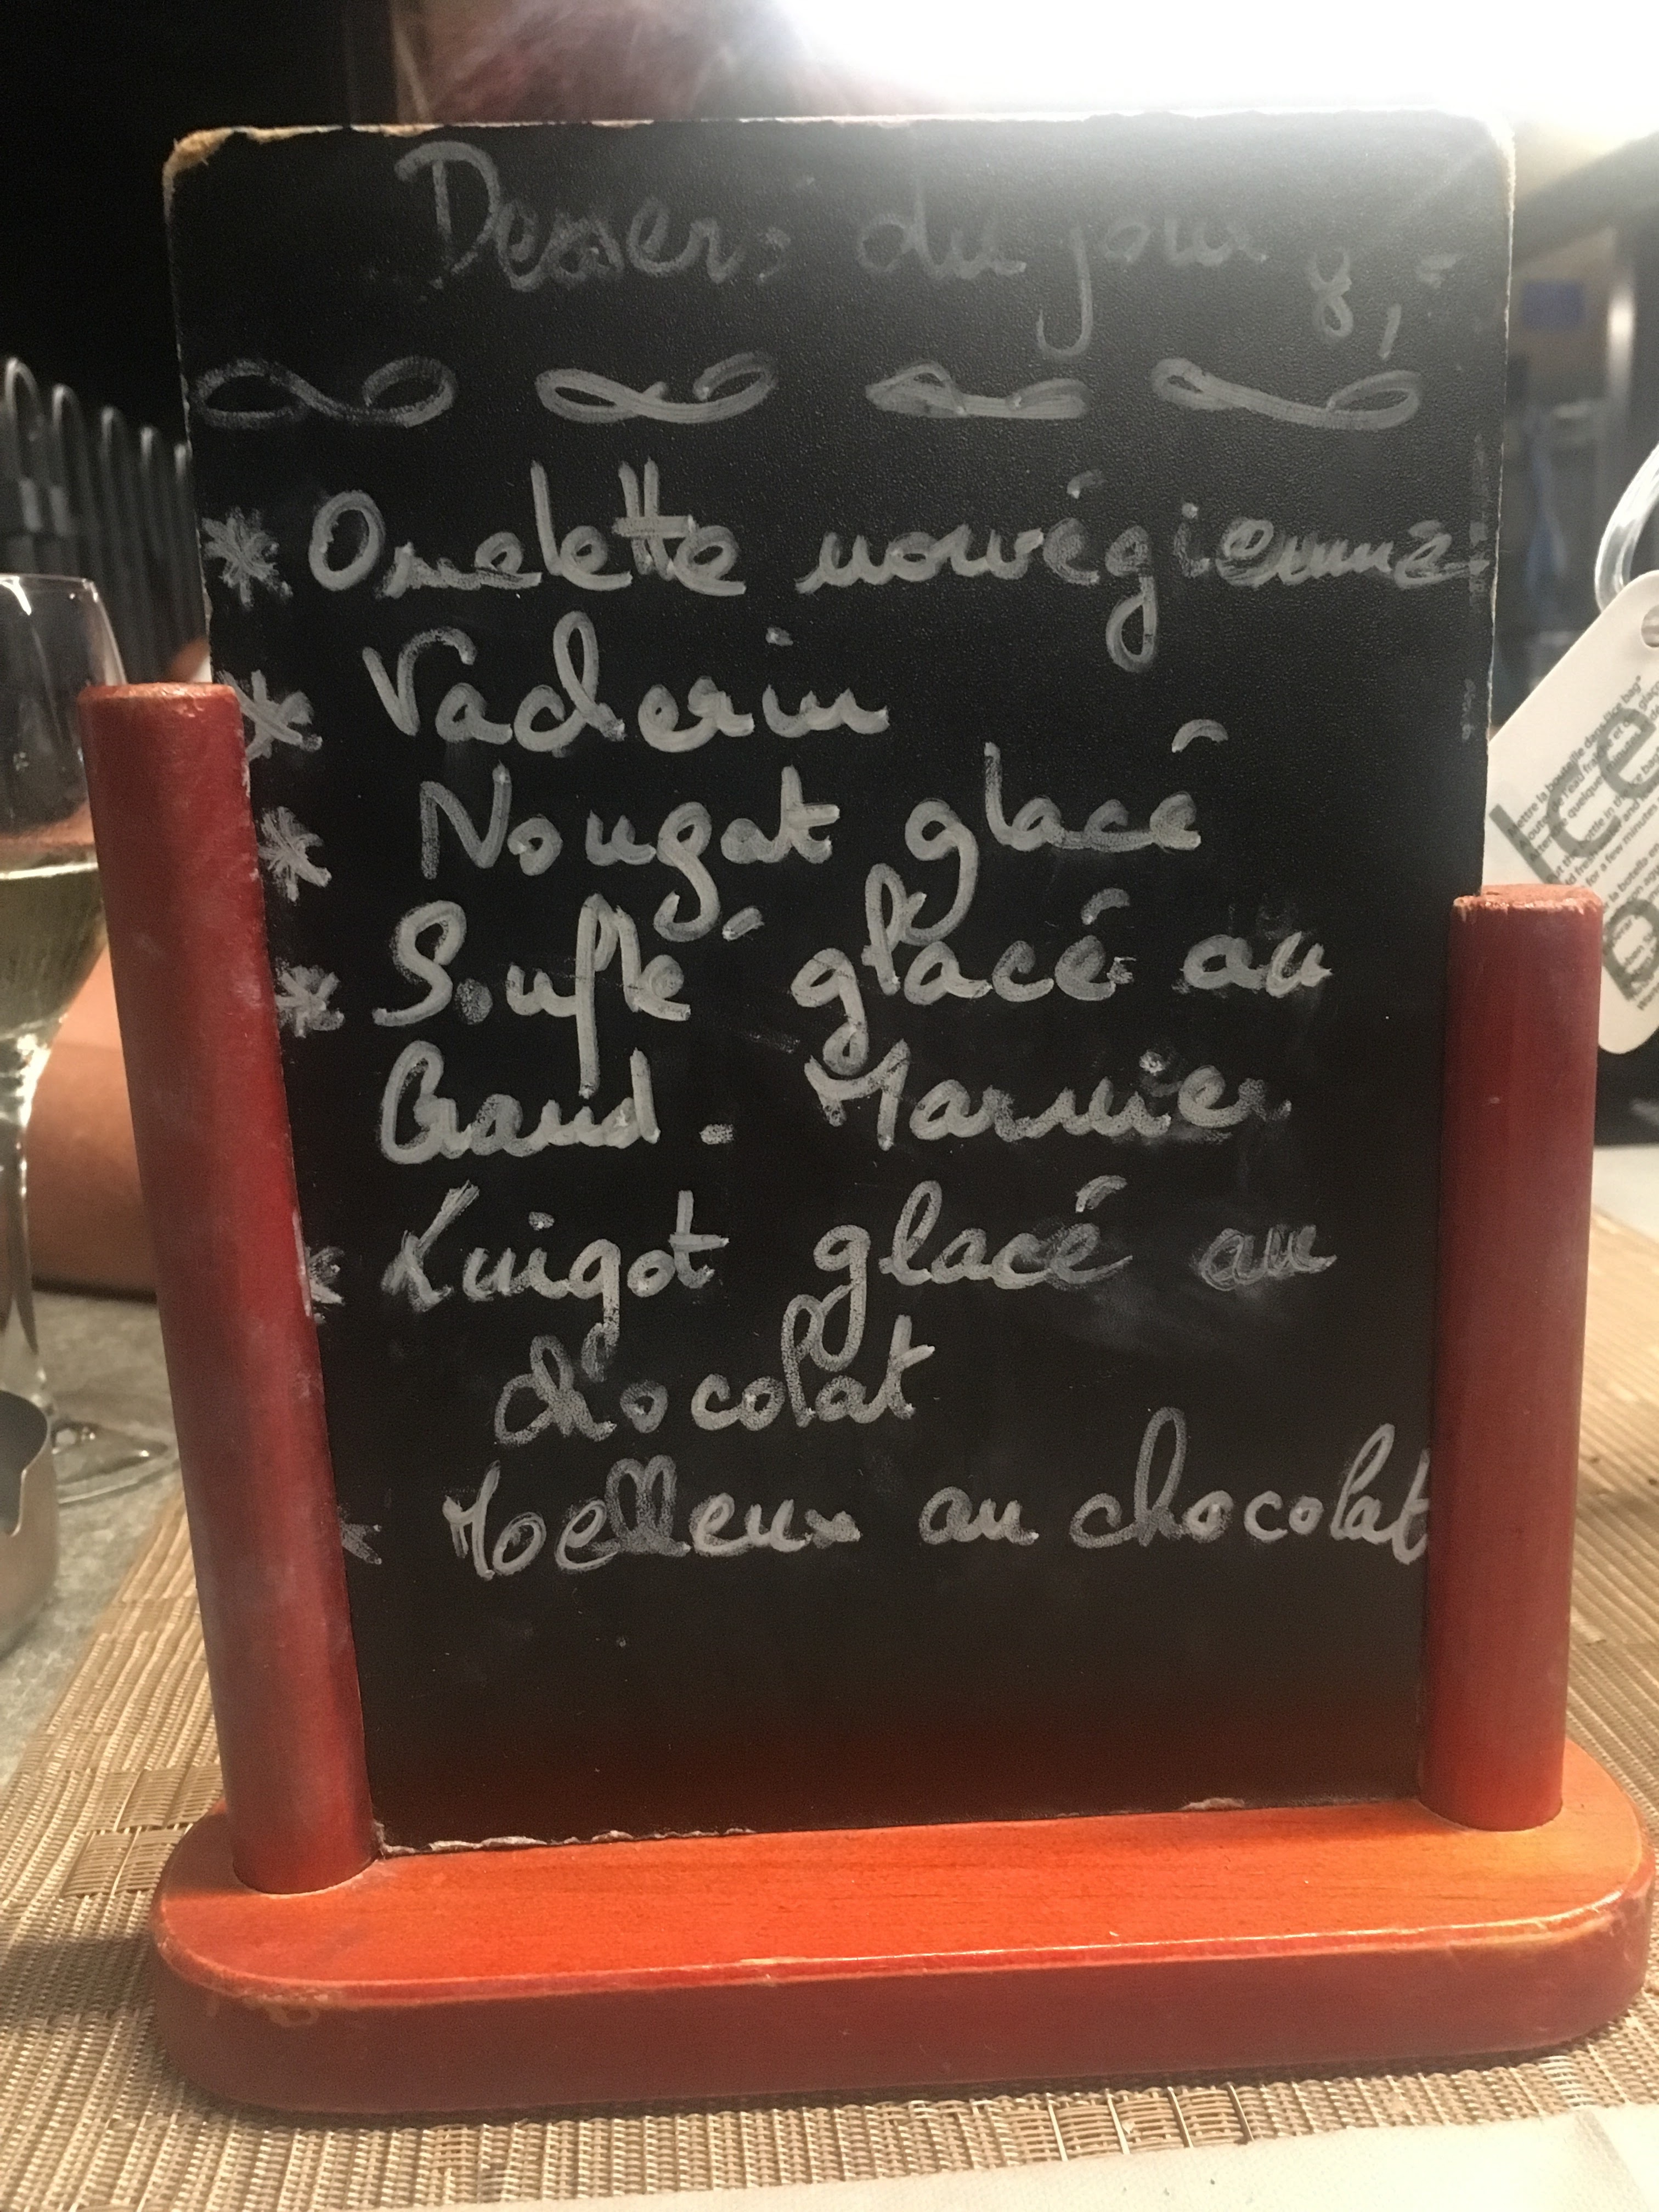 Desserts du jour 8,-
* Omelette norvégienne
* Vacherin
* Nougat glacé
* Souflé glacé au
Grand-Marnier
* Lingot glacé au
chocolat
* Moelleux au chocolat
Ice